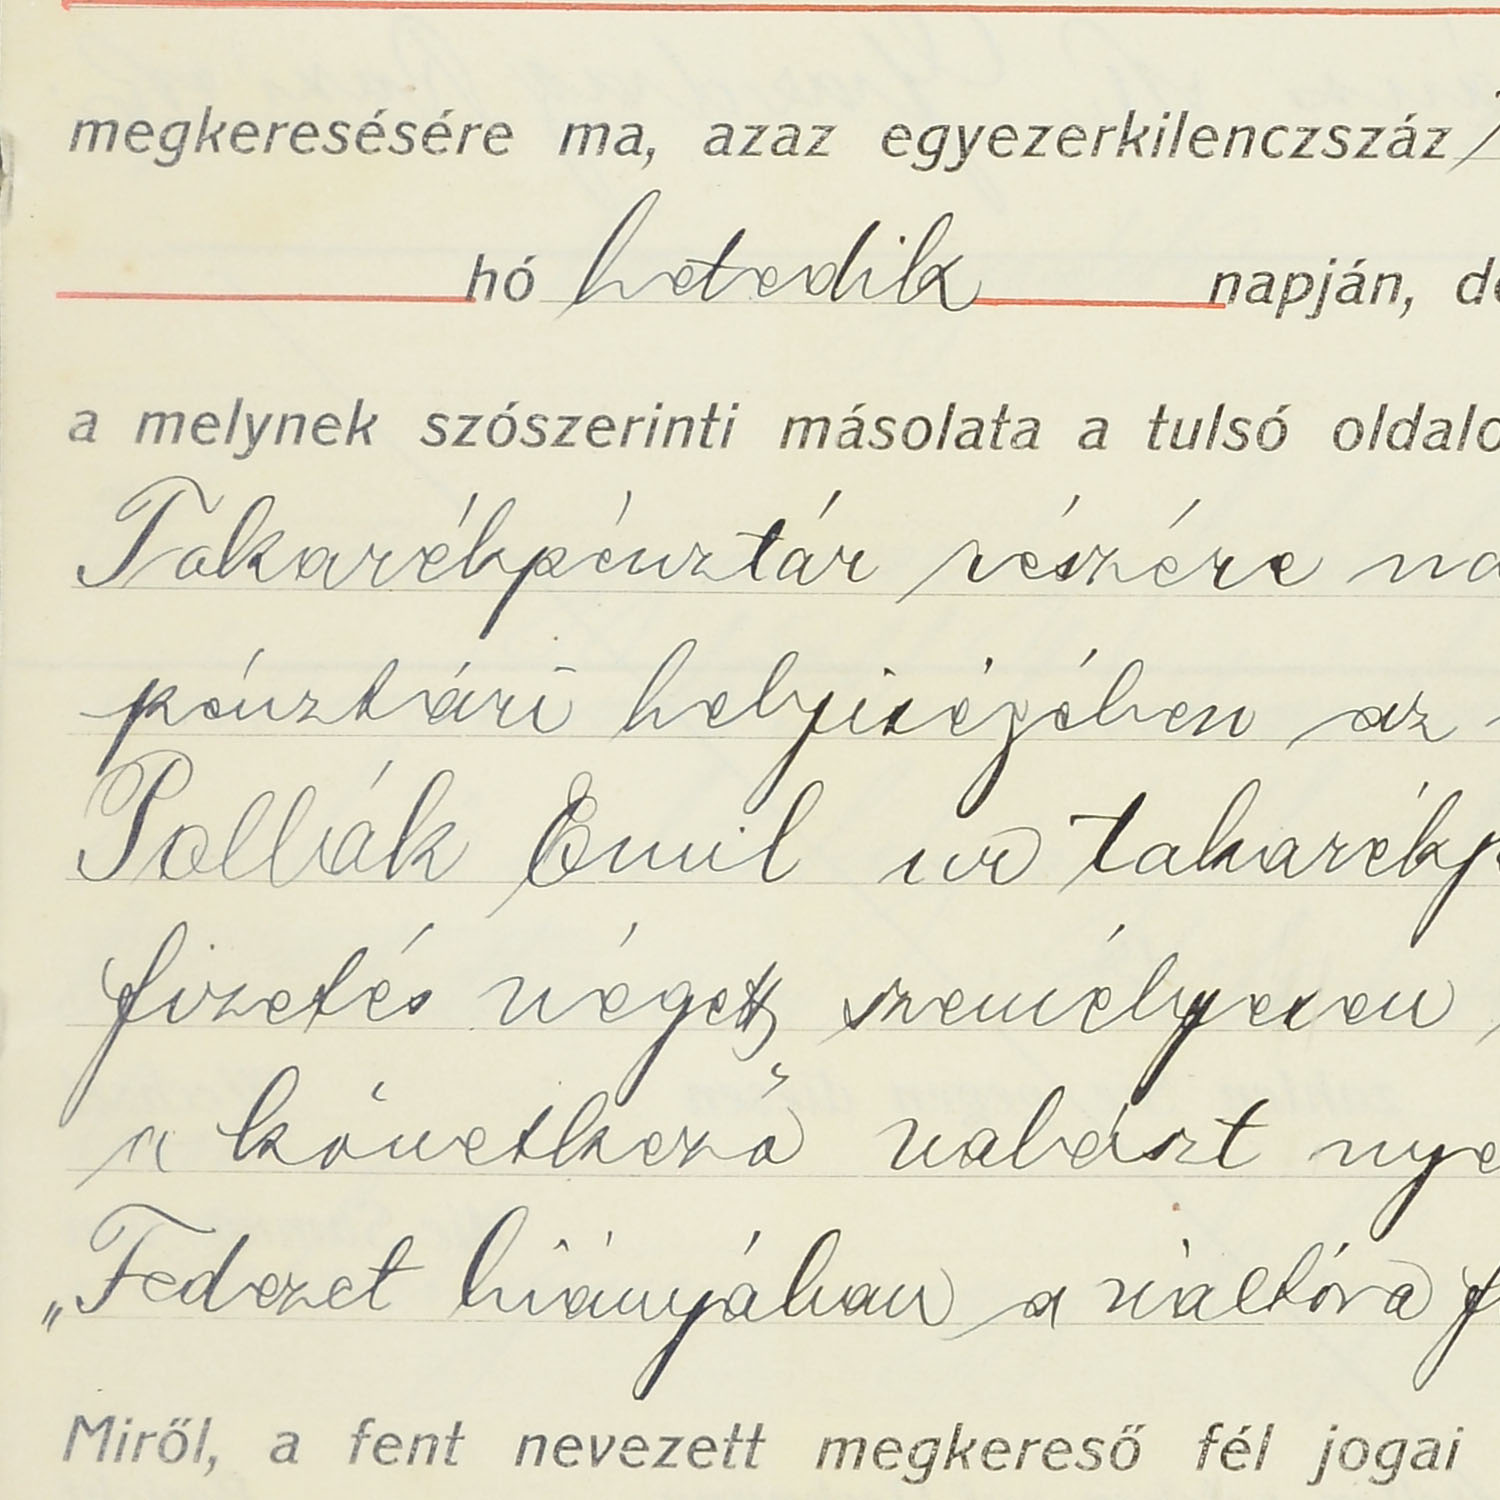 megkeresésére ma, azaz egyezerkilenczszáz
hó hetedik napján, de
a melynek szószerinti másolata a tulsó oldalo
Takarékpénztár részére
pénztári helyiségében az
Pollák Emil ur takarékp
fizetés végett személyesen
a következő választ nye
„Fedezet hiányában a váltóra f
Miről, a fent nevezett megkereső fél jogai